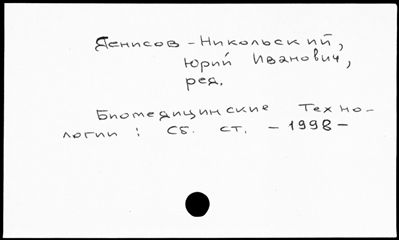 Денисов-Никольский,
Юрий Иванович,
ред.
Биомедицинские техно-
логии : Сб. ст. - 1998 -